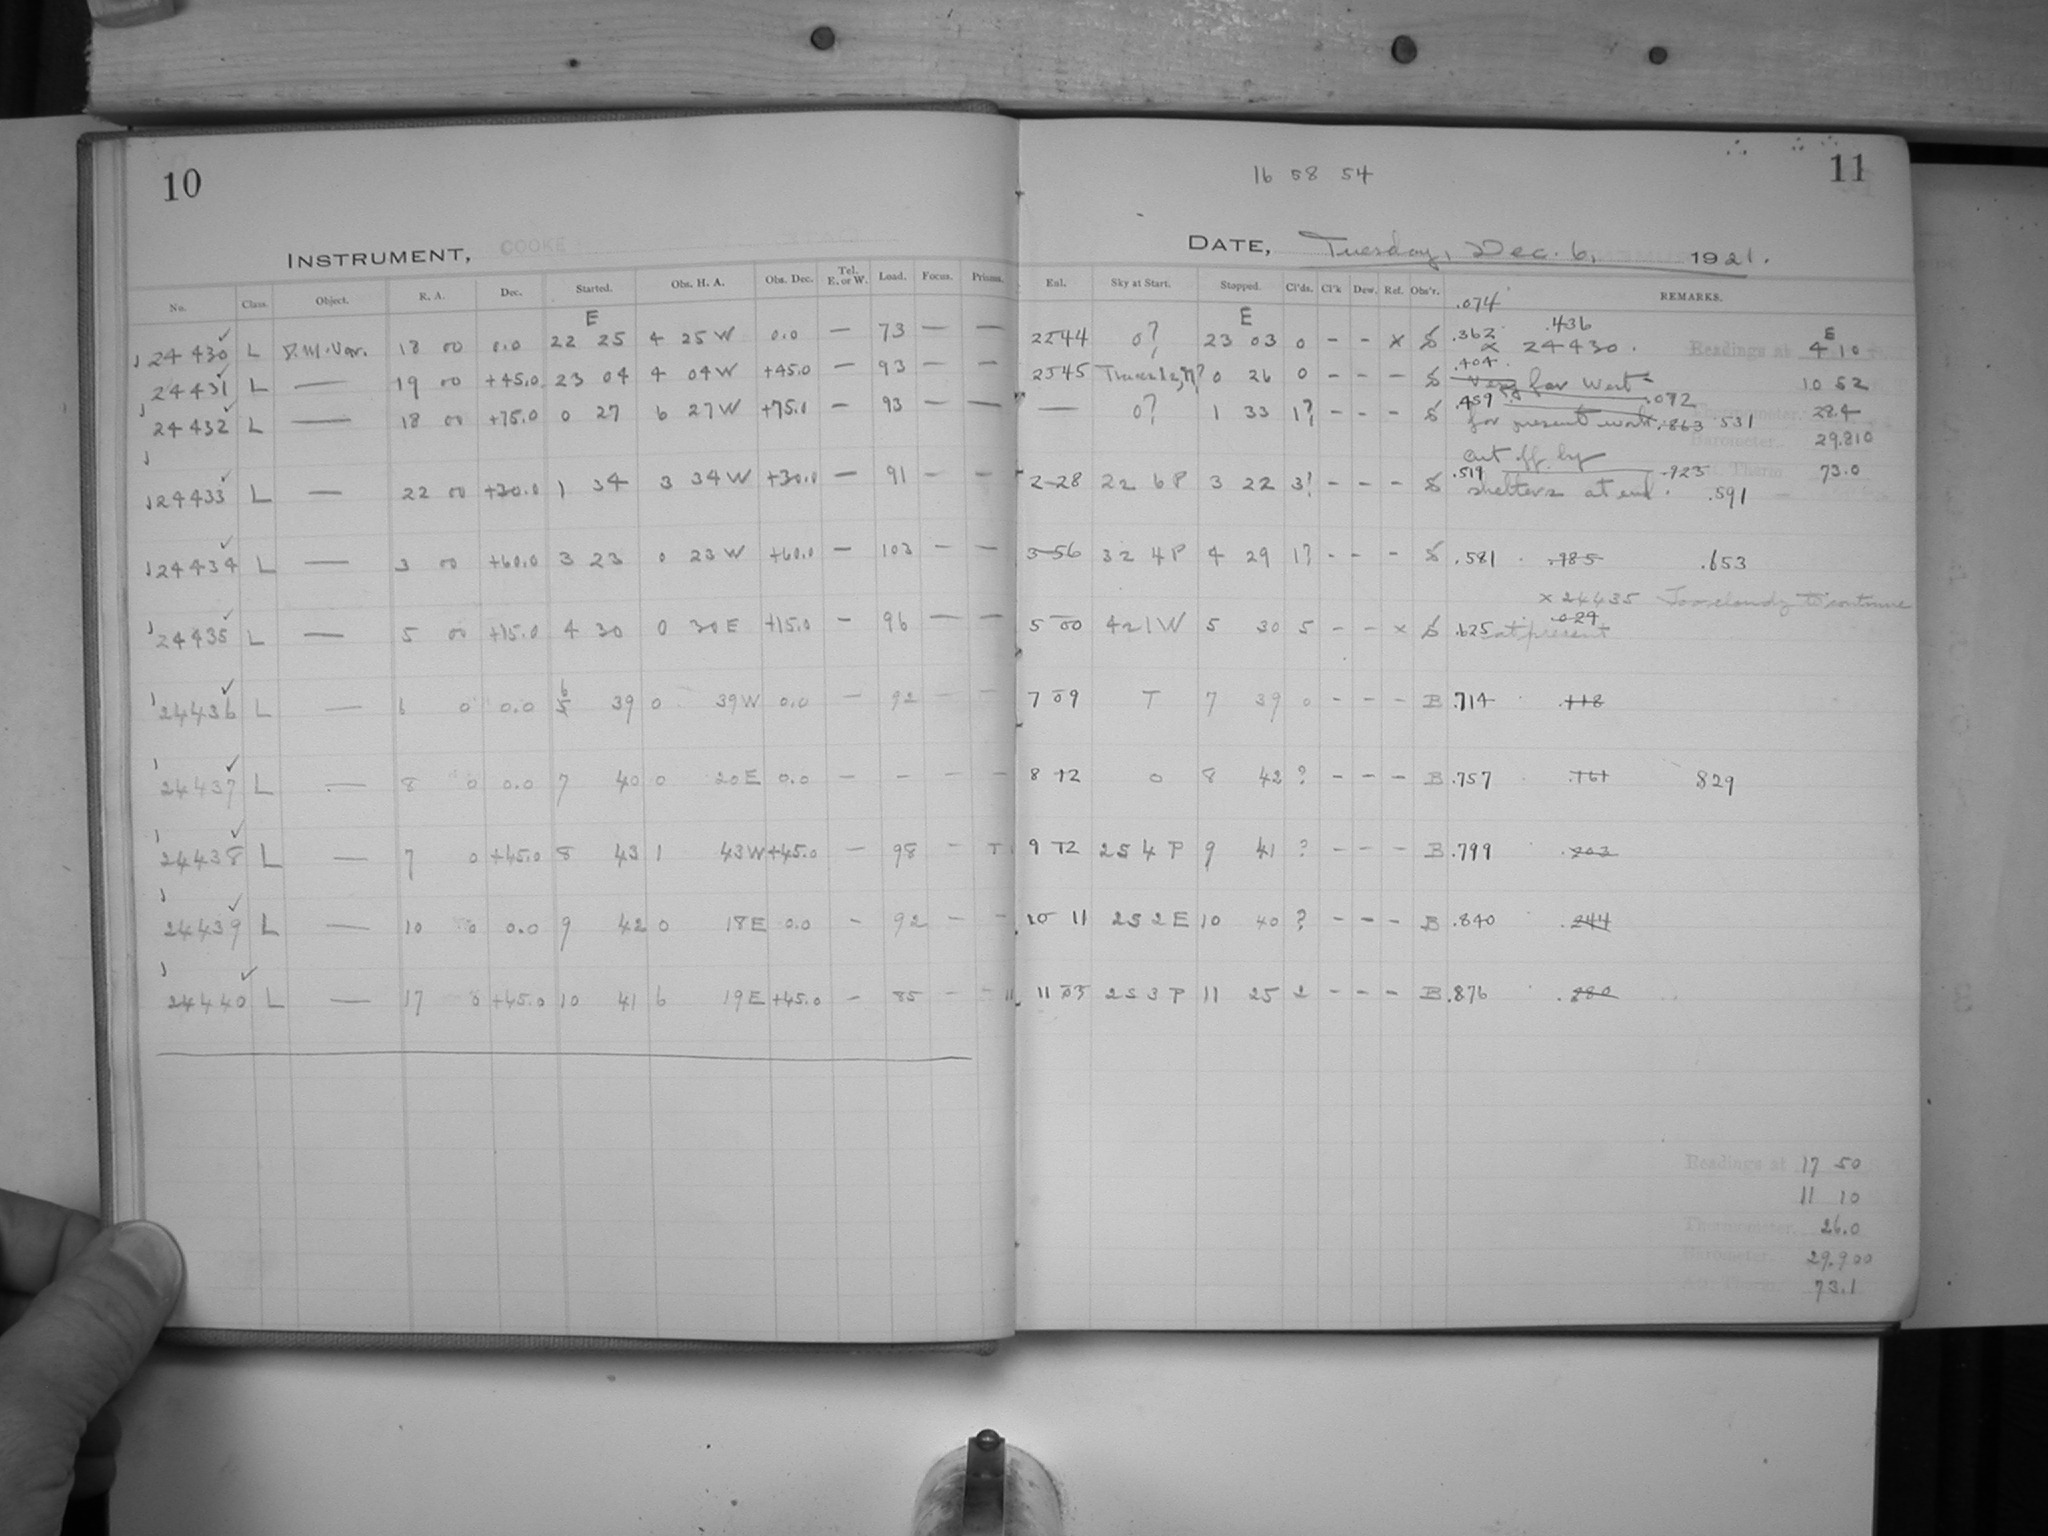 10
INSTRUMENT, COOKE
No. Class. Object. R. A. Dec. Started. Obs. H. A. Obs. Dec. Tel. E. or W. Load. Focus. Prisms.
E
24430 L D.M. Var. 18 00 0.0 22 25 4 25 W 0.0 — 73 — —
24431 L — 19 00 +45.0 23 04 4 04 W +45.0 — 93 — —
24432 L — 18 00 +75.0 0 27 6 27 W +75.0 — 93 — —
24433 L — 22 00 +30.0 1 34 3 34 W +30.0 — 91 — —
24434 L — 3 00 +60.0 3 23 0 23 W +60.0 — 103 — —
24435 L — 5 00 +15.0 4 30 0 30 E +15.0 — 96 — —
24436 L — 6 0 0.0 6 39 0 39 W 0.0 — 92 — —
24437 L — 8 0 0.0 7 40 0 20 E 0.0 — - — —
24438 L — 7 0 +45.0 8 43 1 43 W +45.0 — 98 -
24439 L — 10 0 0.0 9 42 0 18 E 0.0 - 92 — -
24440 L — 17 0 +45.0 10 41 6 19 E +45.0 — 85 - -
11
16 58 54
DATE, Tuesday, Dec. 6, 1921.
Eul. Sky at Start. Stopped. Cl'ds. Cl'k Dew. Ref. Obs'r. REMARKS.
.074
E
22 44 0? 23 03 0 - - x S .362 .436
x 24430.
23 45 0 26 0 - - - S .404 Very far West
— 0? 1 33 1? - - - S .459 .072
for present work .863 .531
cut off by
2 28 22 6 P 3 22 3? - - - S .519 .923
shelters at end. .591
3 56 32 4 P 4 29 1? - - - S .581 .985 .653
x 24435 Too cloudy to continue
5 00 42 1 W 5 30 5 - - x S .625 at present .029
7 09 T 7 39 0 - - - B .714 .118
8 12 0 8 42 ? - - - B .757 .161 829
9 12 25 4 P 9 41 ? - - - B .799 .203
10 11 25 2 E 10 40 ? - - - B .840 .244
11 03 25 3 P 11 25 2 - - - B .876 .280
E
Readings at 4 10
10 52
Thermometer. 28.4
Barometer. 29.810
Att. Therm. 73.0
Readings at 17 50
11 10
Thermometer. 26.0
Barometer. 29.900
Att. Therm. 73.1